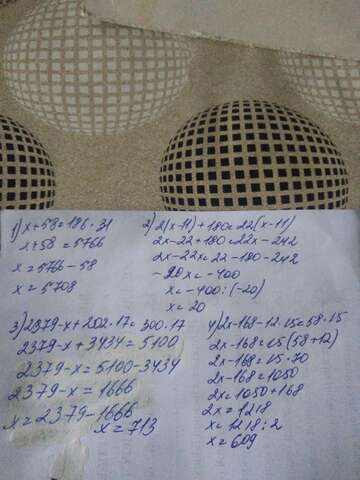 1) x+58=186·31
x+58=5766
x=5766-58
x=5708
2) 2(x-11)+180=22(x-11)
2x-22+180=22x-242
2x-22x=22-180-242
-20x=-400
x=-400:(-20)
x=20
3) 2379-x+202·17=300·17
2379-x+3434=5100
2379-x=5100-3434
2379-x=1666
x=2379-1666
x=713
4) 2x-168-12·15=58·15
2x-168=15(58+12)
2x-168=15·70
2x-168=1050
2x=1050+168
2x=1218
x=1218:2
x=609